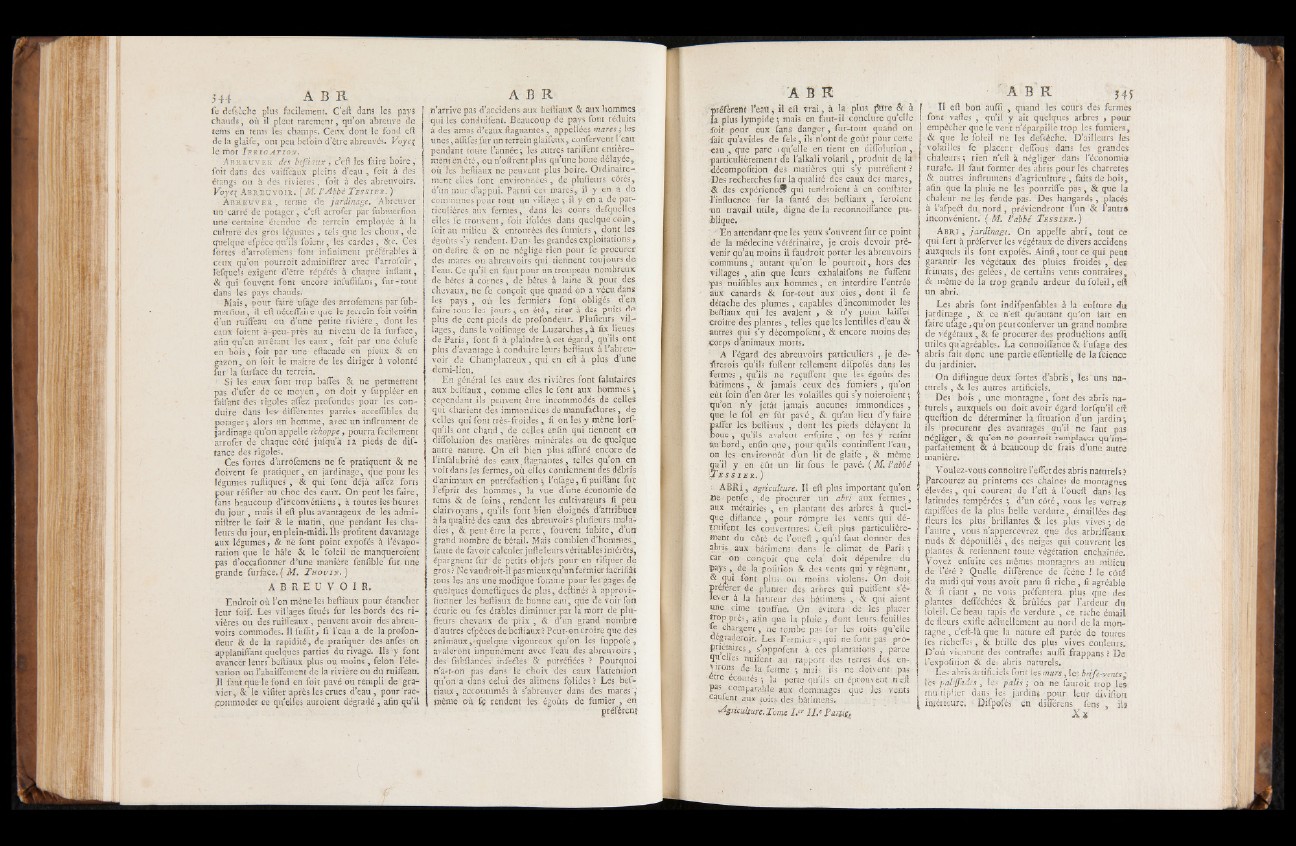 344 A B R
se desséche plus facilement. C'est dans les pays
chauds, où il pleut rarement, qu'on abreuve de
tems en tems les champs. Ceux dont le fond est
de la glaise, ont peu besoin d'être abreuvés. Voyez
le mot IRRIGATION.
ABREUVER des bestiaux, c'est les faire boire,
soit dans des vaisseaux pleins d'eau, soit à des
étangs ou à des rivieres, soit à des abreuvoirs.
Voyez ABREUVOIR. (M. l'Abbé TESSIER.)
ABREUVER, terme de jardinage. Abreuver
un carré de potager, c'est arroser par submersion
une certaine étendue de terrein employée à la
culture des gros légumes, tels que les choux, de
quelque espéce qu'ils soient, les cardes, &c. Ces
sortes d'arrosemens sont infiniment préférables à
ceux qu'on pourroit administrer avec l'arrosoir,
lesquels exigent d'être répétés à chaque instant,
& qui souvent sont encore insuffisans, sur-tout
dans les pays chauds.
Mais, pour faire usage des arrosemens par sub-
mersion, il est nécessaire que le terrein soit voisin
d'un ruisseau ou d'une petite rivière, dont les
eaux soient à-peu-près au niveau de la surface,
afin qu'en arrêtant les eaux, soit par une écluse
en bois, soit par une estacade en pieux & en
gazon, on soit le maitre de les diriger à volonté
sur la surface du terrein.
Si les eaux sont trop basses & ne permettent
pas d'user de ce moyen, on doit y suppléer en
faisant des rigoles assez profondes pour les con-
duire dans les différentes parties accessibles du
potager; alors un homme, avec un instrument de
jardinage qu'on appelle échoppe, pourra facilement
arroser de chaque côté jusqu'à 12 pieds de dis-
tance des rigoles.
Ces sortes d'arrosemens ne se pratiquent & ne
doivent se pratiquer, en jardinage, que pour les
légumes rustiques, & qui sont déjà assez forts
pour résister au choc des eaux. On peut les faire,
sans beaucoup d'inconvéniens, à toutes les heures
du jour, mais il est plus avantageux de les admi-
nistrer le soir & le matin, que pendant les cha-
leurs du jour, en plein-midi. Ils profitent davantage
aux légumes, & ne sont point exposés à l'évapo-
ration que le hâle & le soleil ne manqueroient
pas d'occasionner d'une manière sensible sur une
grande surface. (M. THOUIN.)
A B R E U V O I R.
Endroit où l'on mène les bestiaux pour étancher
leur soif. Les villages situés sur les bords des ri-
vières ou des ruisseaux, peuvent avoir des abreu-
voirs commodes. Il suffit, si l'eau a de la profon-
deur & de la rapidité, de pratiquer des anses en
applanissant quelques parties du rivage. Ils y font
avancer leurs bestiaux plus ou moins, selon l'élé-
vation ou l'abaissement de la rivière ou du ruisseau.
Il faut que le fond en soit pavé ou rempli de gra-
vier, & le visiter après les crues d'eau, pour rac-
commoder ce qu'elles auroient dégradé, afin qu'il
A B R
n'arrive pas d'accidens aux bestiaux & aux hommes
qui les conduisent. Beaucoup de pays sont réduits
à des amas d'eaux stagnantes, appellées mares; les
unes, assises sur un terrein glaiseux, conservent l'eau
pendant toute l'année; les autres tarissent entière-
ment en été, ou n'offrent plus qu'une boue délayée,
où les bestiaux ne peuvent plus boire. Ordinaire-
ment elles sont environnées, de plusieurs côtés,
d'un mur d'appui. Parmi ces mares, il y en a de
communes pour tout un village; il y en a de par-
ticulières aux fermes, dans les cours desquelles
elles se trouvent, soit isolées dans quelque coin,
soit au milieu & entourées des fumiers, dont les
égoûts s'y rendent. Dans les grandes exploitations,
on desire & on ne néglige rien pour se procurer
des mares ou abreuvoirs qui tiennent toujours de
l'eau. Ce qu'il en faut pour un troupeau nombreux
de bêtes à cornes, de bêtes à laine & pour des
chevaux, ne se conçoit que quand on a vécu dans
les pays, où les fermiers sont obligés d'en
faire tous les jours, en été, tirer à des puits de
plus de cent pieds de profondeur. Plusieurs vil-
lages, dans le voisinage de Luzarches, à six lieues
de Paris, sont si à plaindre à cet égard, qu'ils ont
plus d'avantage à conduire leurs bestiaux à l'abreu-
voir de Champlatreux, qui en est à plus d'une
demi-lieu.
En général les eaux des rivières sont salutaires
aux bestiaux, comme elles le sont aux hommes;
cependant ils peuvent être incommodés de celles
qui charient des immondices de manufactures, de
celles qui sont très-froides, si on les y mène lors-
qu'ils ont chaud, de celles enfin qui tiennent en
dissolution des matières minérales ou de quelque
autre nature. On est bien plus assuré encore de
l'insalubrité des eaux stagnantes, telles qu'on en
voit dans les fermes, où elles contiennent des débris
d'animaux en putréfaction; l'usage, si puissant sur
l'esprit des hommes, la vue d'une économie de
tems & de soins, rendent les cultivateurs si peu
clairvoyans, qu'ils sont bien éloignés d'attribuer
à la qualité des eaux des abreuvoirs plusieurs mala-
dies, & peut être la perte, souvent subite, d'un
grand nombre de bétail. Mais combien d'hommes,
faute de savoir calculer juste leurs véritables intérêts,
épargnent sur de petits objets pour en risquer de
gros? Ne vaudroit-il pas mieux qu'un fermier sacrifiât
tous les ans une modique somme pour les gages de
quelques domestiques de plus, destinés à approvi-
sionner les bestiaux de bonne eau, que de voir son
écurie ou ses étables diminuer par la mort de plu-
sieurs chevaux de prix, & d'un grand nombre
d'autres espèces de bestiaux? Peut-on croire que des
animaux, quelque vigoureux qu'on les suppose,
avaleront impunément avec l'eau des abreuvoirs,
des substances infectes & putréfiées? Pourquoi
n'a-t-on pas dans le choix des eaux l'attention
qu'on a dans celui des alimens solides? Les bes-
tiaux, accoutumés à s'abreuver dans des mares,
même où se rendent les égoûts de fumier, en
préfèrent
A B R
préfèrent l'eau, il est vrai, à la plus pure & à
la plus lympide; mais en faut-il conclure qu'elle
soit pour eux sans danger, sur-tout quand on
sait qu'avides de sels, ils n'ont de goût pour cette
eau, que parce qu'elle en tient en dissolution,
particulièrement de l'alkali volatil, produit de la
décomposition des matières qui s'y putréfient?
Des recherches sur la qualité des eaux des mares,
& des expériences qui tendroient à en constater
l'influence sur la santé des bestiaux, seroient
un travail utile, digne de la reconnoissance pu-
blique.
En attendant que les yeux s'ouvrent sur ce point
de la médecine vétérinaire, je crois devoir pré-
venir qu'au moins il faudroit porter les abreuvoirs
communs, autant qu'on le pourroit, hors des
villages, afin que leurs exhalaisons ne fussent
pas nuisibles aux hommes, en interdire l'entrée
aux canards & sur-tout aux oies, dont il se
détache des plumes, capables d'incommoder les
bestiaux qui les avalent, & n'y point laisser
croitre des plantes, telles que les lentilles d'eau &
autres qui s'y décomposent, & encore moins des
corps d'animaux morts.
A l'égard des abreuvoirs particuliers, je de-
sirerois qu'ils fussent tellement disposés dans les
fermes, qu'ils ne reçussent que les égoûts des
bâtimens, & jamais ceux des fumiers, qu'on
eût soin d'en ôter les volailles qui s'y noieroient;
qu'on n'y jetât jamais aucunes immondices,
que le sol en fût pavé, & qu'au lieu d'y faire
passer les bestiaux, dont les pieds délayent la
boue, qu'ils avalent ensuite, on les y retint
au bord, enfin que, pour qu'ils continssent l'eau,
on les environnât d'un lit de glaise, & même
qu'il y en eût un lit sous le pavé. (M. l'abbé
TESSIER.)
ABRI, agriculture. Il est plus important qu'on
ne pense, de procurer un abri aux fermes,
aux métairies, en plantant des arbres à quel-
que distance, pour rompre les vents qui dé-
truisent les couvertures. C'est plus particulière-
ment du côté de l'ouest, qu'il faut donner des
abris aux bâtimens dans le climat de Paris;
car on conçoit que cela doit dépendre du
pays, de la position & des vents qui y règnent,
& qui sont plus ou moins violens. On doit
préférer de planter des arbres qui puissent s'é-
lever à la hauteur des bâtimens, & qui aient
une cime touffue. On évitera de les placer
trop près, afin que la pluie, dont leurs feuilles
se chargent, ne tombe pas sur les toits qu'elle
dégraderoit. Les Fermiers, qui ne sont pas pro-
priétaires, s'opposent à ces plantations, parce
qu'elles nuisent au rapport des terres des en-
virons de la ferme; mais ils ne doivent pas
être écoutés; la perte qu'ils en éprouvent n'est
pas comparable aux dommages que les vents
causent aux toits des bâtimens.
Agriculture. Tome I.er II.e Partie.
A B R 345
Il est bon aussi, quand les cours des fermes
sont vastes, qu'il y ait quelques arbres, pour
empêcher que le vent n'éparpille trop les fumiers,
& que le soleil ne les dessèche. D'ailleurs les
volailles se placent dessous dans les grandes
chaleurs; rien n'est à négliger dans l'économie
rurale. Il faut former des abris pour les charrettes
& autres instrumens d'agriculture, faits de bois,
afin que la pluie ne les pourrisse pas, & que la
chaleur ne les fende pas. Des hangards, placés
à l'aspect du nord, préviendront l'un & l'autre
inconvénient. (M. l'abbé TESSIER.)
ABRI, jardinage. On appelle abri, tout ce
qui sert à préserver les végétaux de divers accidens
auxquels ils sont exposés. Ainsi, tout ce qui peut
garantir les végétaux des pluies froides, des
frimats, des gelées, de certains vents contraires,
& même de la trop grande ardeur du soleil, est
un abri.
Les abris sont indispensables à la culture du
jardinage, & ce n'est qu'autant qu'on sait en
faire usage, qu'on peut conserver un grand nombre
de végétaux, & se procurer des productions aussi
utiles qu'agréables. La connoissance & l'usage des
abris fait donc une partie essentielle de la science
du jardinier.
On distingue deux sortes d'abris, les uns na-
turels, & les autres artificiels.
Des bois, une montagne, sont des abris na-
turels, auxquels on doit avoir égard lorsqu'il est
question de déterminer la situation d'un jardin;
ils procurent des avantages qu'il ne faut pas
négliger, & qu'on ne pourroit remplacer qu'im-
parfaitement & à beaucoup de frais d'une autre
manière.
Voulez-vous connoitre l'effet des abris naturels?
Parcourez au printems ces chaînes de montagnes
élevées, qui courent de l'est à l'ouest dans les
latitudes tempérées; d'un côté, vous les verrez
tapissées de la plus belle verdure, émaillées des
fleurs les plus brillantes & les plus vives; de
l'autre, vous n'appercevrez que des arbrisseaux
nuds & dépouillés, des neiges qui couvrent les
plantes & retiennent toute végétation enchaînée.
Voyez ensuite ces mêmes montagnes au milieu
de l'été? Quelle différence de scène! le côté
du midi qui vous avoit paru si riche, si agréable
& si riant, ne vous présentera plus que des
plantes desséchées & brûlées par l'ardeur du
soleil. Ce beau tapis de verdure, ce riche émail
de fleurs existe actuellement au nord de la mon-
tagne, c'est-là que la nature est parée de toutes
ses richesses, & brille des plus vives couleurs.
D'où viennent des contrastes aussi frappans? De
l'exposition & des abris naturels.
Les abris artificiels sont les murs, les brise-vents,
les palissades, les palis; on ne sauroit trop les
multiplier dans les jardins pour leur division
intérieure. Disposés en différens sens, ils
X x